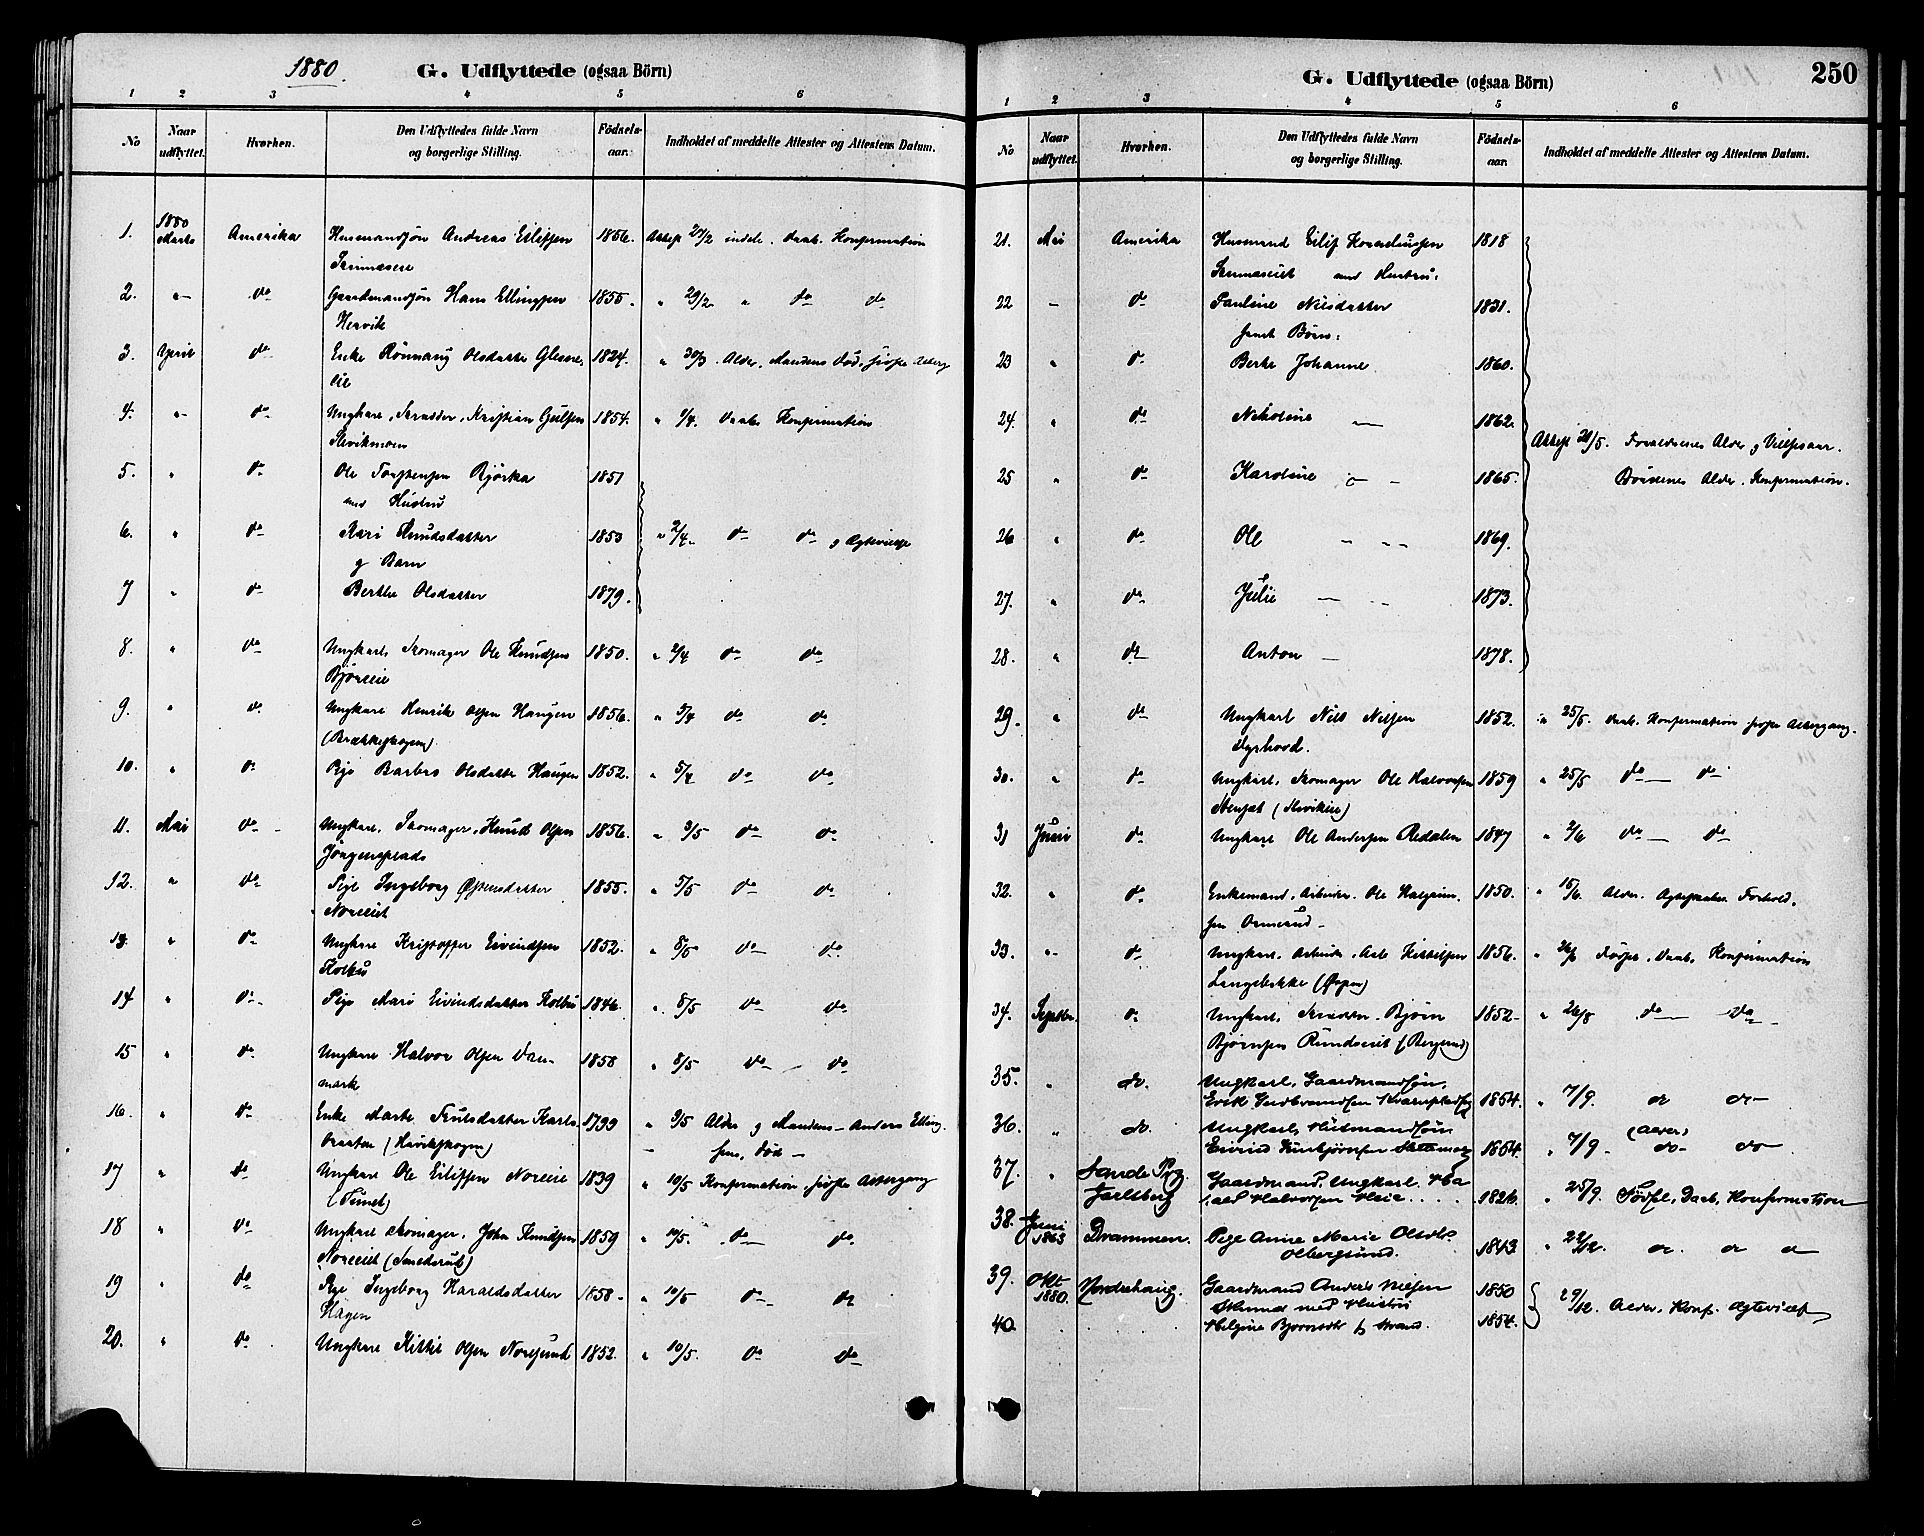 1880.
G. Udflyttede (ogsaa Börn)
1 2 3 4 5 6
No
Naar udflyttet.
Hvorhen.
Den Udflyttedes fulde Navn og borgerlige Stilling.
Fødsels-aar.
Indholdet af meddelte Attester og Attestens Datum.
1. 1880 Marts Amerika Husmandsøn Andreas Eilifsen 1856. Attest 27/2 indeh. Daab. Konfirmation
2. " do Gaardmandsøn Hans Ellingsen 1855. " 29/2 " do do
Hervik
3. April do Enke Rönnaug Olsdatter Glesne- 1824. " 30/3 Alder, Mandens Død, sidste Alterg
eie
4. " do Ungkarl, Skrædder, Kristian Gulsen 1854. " 1/4. Daab. Konfirmation
5. " do Ole Torstensen Bjørka 1851
med Hustru
6. " do Kari Knudsdatter 1850 " 2/4. do do g Ægtevielse
g Barn
7 " do Berthe Olsdatter 1879.
8. " do Ungkarl, Skomager Ole Knudsen 1850. " 2/4 do do
9. " do Ungkarl Henrik Olsen Haugen 1856. " 5/4 do do
(Brækkeskogen)
10. " do Pige Barbro Olsdatter Haugen 1852. " 5/4 do do
11. Mai do Ungkarl, Skomager, Knud Olsen 1856. " 3/5 do do
Jörgensplads
12. " do Pige Ingeborg Østensdatter 1855. " 5/5 do do
Noreeiet
13. " do Ungkarl Kristoffer Eivindsen 1852. " 8/5 do do
Kolbu
14 " do Pige Mari Eivindsdatter Kolbu 1846. " 8/5 do do
15 " do Ungkarl Halvor Olsen Dan- 1858 " 8/5 do do
mark
16. " do Enke Marte Trulsdatter Karls- 1799 " 9/5 Alder g Mandens - Anders Elling-
braaten (Hervikskogen) sens, Død -
17 " do Ungkarl Ole Eilifsen Noreeie 1839 " 10/5 Konfirmation, sidste Altergang
18 " do Ungkarl Skomager, John Knudsen 1859 " 10/5. do do
Noreeiet (Smedsrud)
19 " do Pige Ingeborg Haraldsdatter 1858 " 10/5 do do
Hagen
20. " do Ungkarl Kittil Olsen Noresund 1852. " 10/5. do do
G. Udflyttede (ogsaa Börn)
250
1 2 3 4 5 6
No
Naar udflyttet.
Hvorhen.
Den Udflyttedes fulde Navn og borgerlige Stilling.
Fødsels-aar.
Indholdet af meddelte Attester og Attestens Datum.
21. Mai Amerika Husmand Eilif 1818
med Hustru:
22 - do Pauline Nilsdatter 1831.
samt Børn:
23 " do Berte Johanne 1860.
24. " do Nikoline 1862.
Attest 21/5. Forældrenes Alder g Vielsesaar.
25 " do Karoline 1865.
Børnenes Alder. Konfirmation.
26 " do Ole 1869.
27. " do Julie 1873.
28. " do Anton 1878.
29. " do Ungkarl Nils Nilsen 1852. " 25/5. Daab. Konfirmation sidste Altergang.
30. " do Ungkarl, Skomager Ole Halvorsen 1859 " 25/5 do do
31 Juni do Ungkarl Ole Andersen Redalen 1847 " 2/6 do do
32. " do Enkemand, Arbeider. Ole Halgrim- 1850. " 15/6. Alder. Ægteskabs Forhold.
sen Ormerud
33. " do Ungkarl. Arbeider. Asle Kittilsen 1856. " Fødsel, Daab, Konfirmation
Langebekke
34. Septbr. do Ungkarl, Skrædder. Bjørn 1852 " 26/8 do do
Bjørnsen Rundseiet (Bergerud)
35. " do. Ungkarl, Gaardmandsøn,
Erik Gudbrandsen 1854. " 7/9. do do
36. " do. Ungkarl, Husmandsøn (Alder)
Eivind 1854. " 7/9. do- do
37. " Sande Pg. Gaardmand, Ungkarl. Ha
Jarlsberg 1826. " 25/9. Fødsl, Daab, Konfirmation
38. Juni 1863 Drammen. Pige Anne Marie Olsdtr. 1843. " 22/12. do. do do
Olbergsund.
39. Okt 1880. Norderhaug. Gaardmand Anders Nielsen 1850
Strand med Hustru 29/12. Alder, Konf. Ægteviet
40. Helgine Bjørnsdtr Strand. 1854.